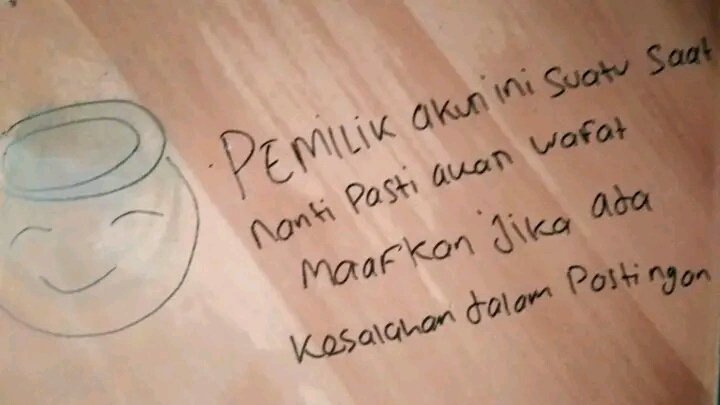 PEMILIK akun ini suatu saat
nanti Pasti akan wafat
maafkan Jika ada
kesalahan dalam Postingan